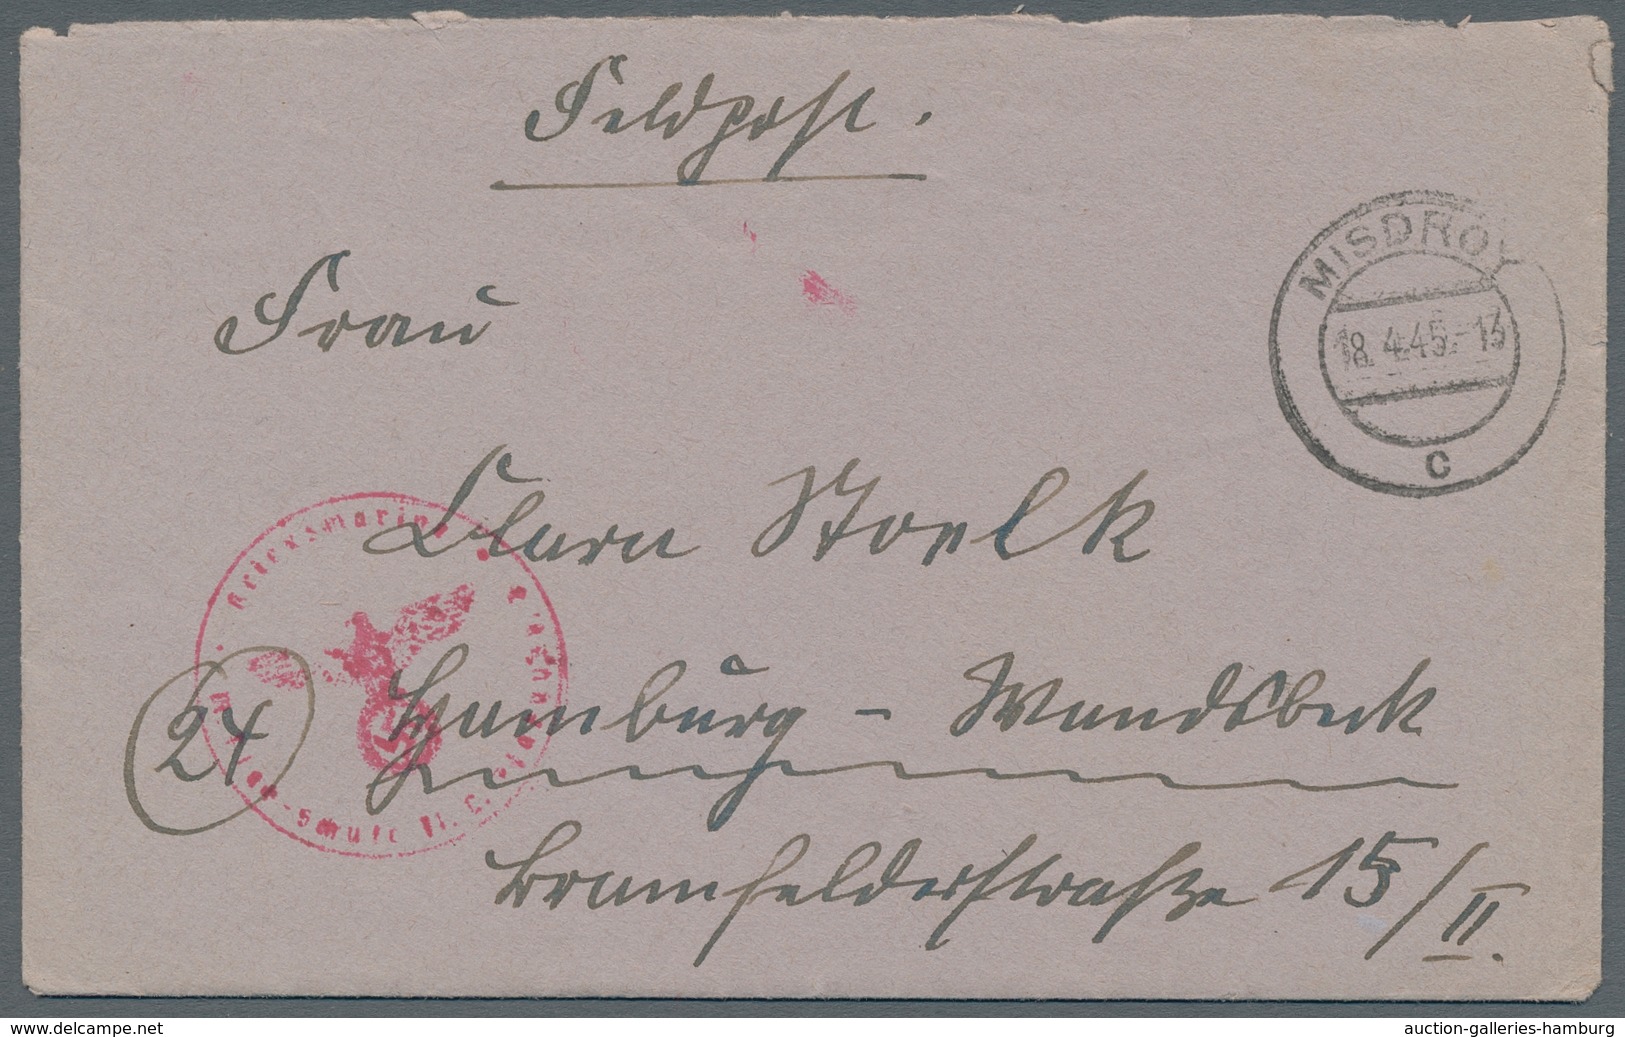 Feldpost.
MISDROY
18.4.45.-13
c
Frau
Clara Stoelk
Kriegsmarine
24 Hamburg - Wandsbek
Bramfelderstraße 15/II.
www.delcampe.net
auction-galleries-hamburg